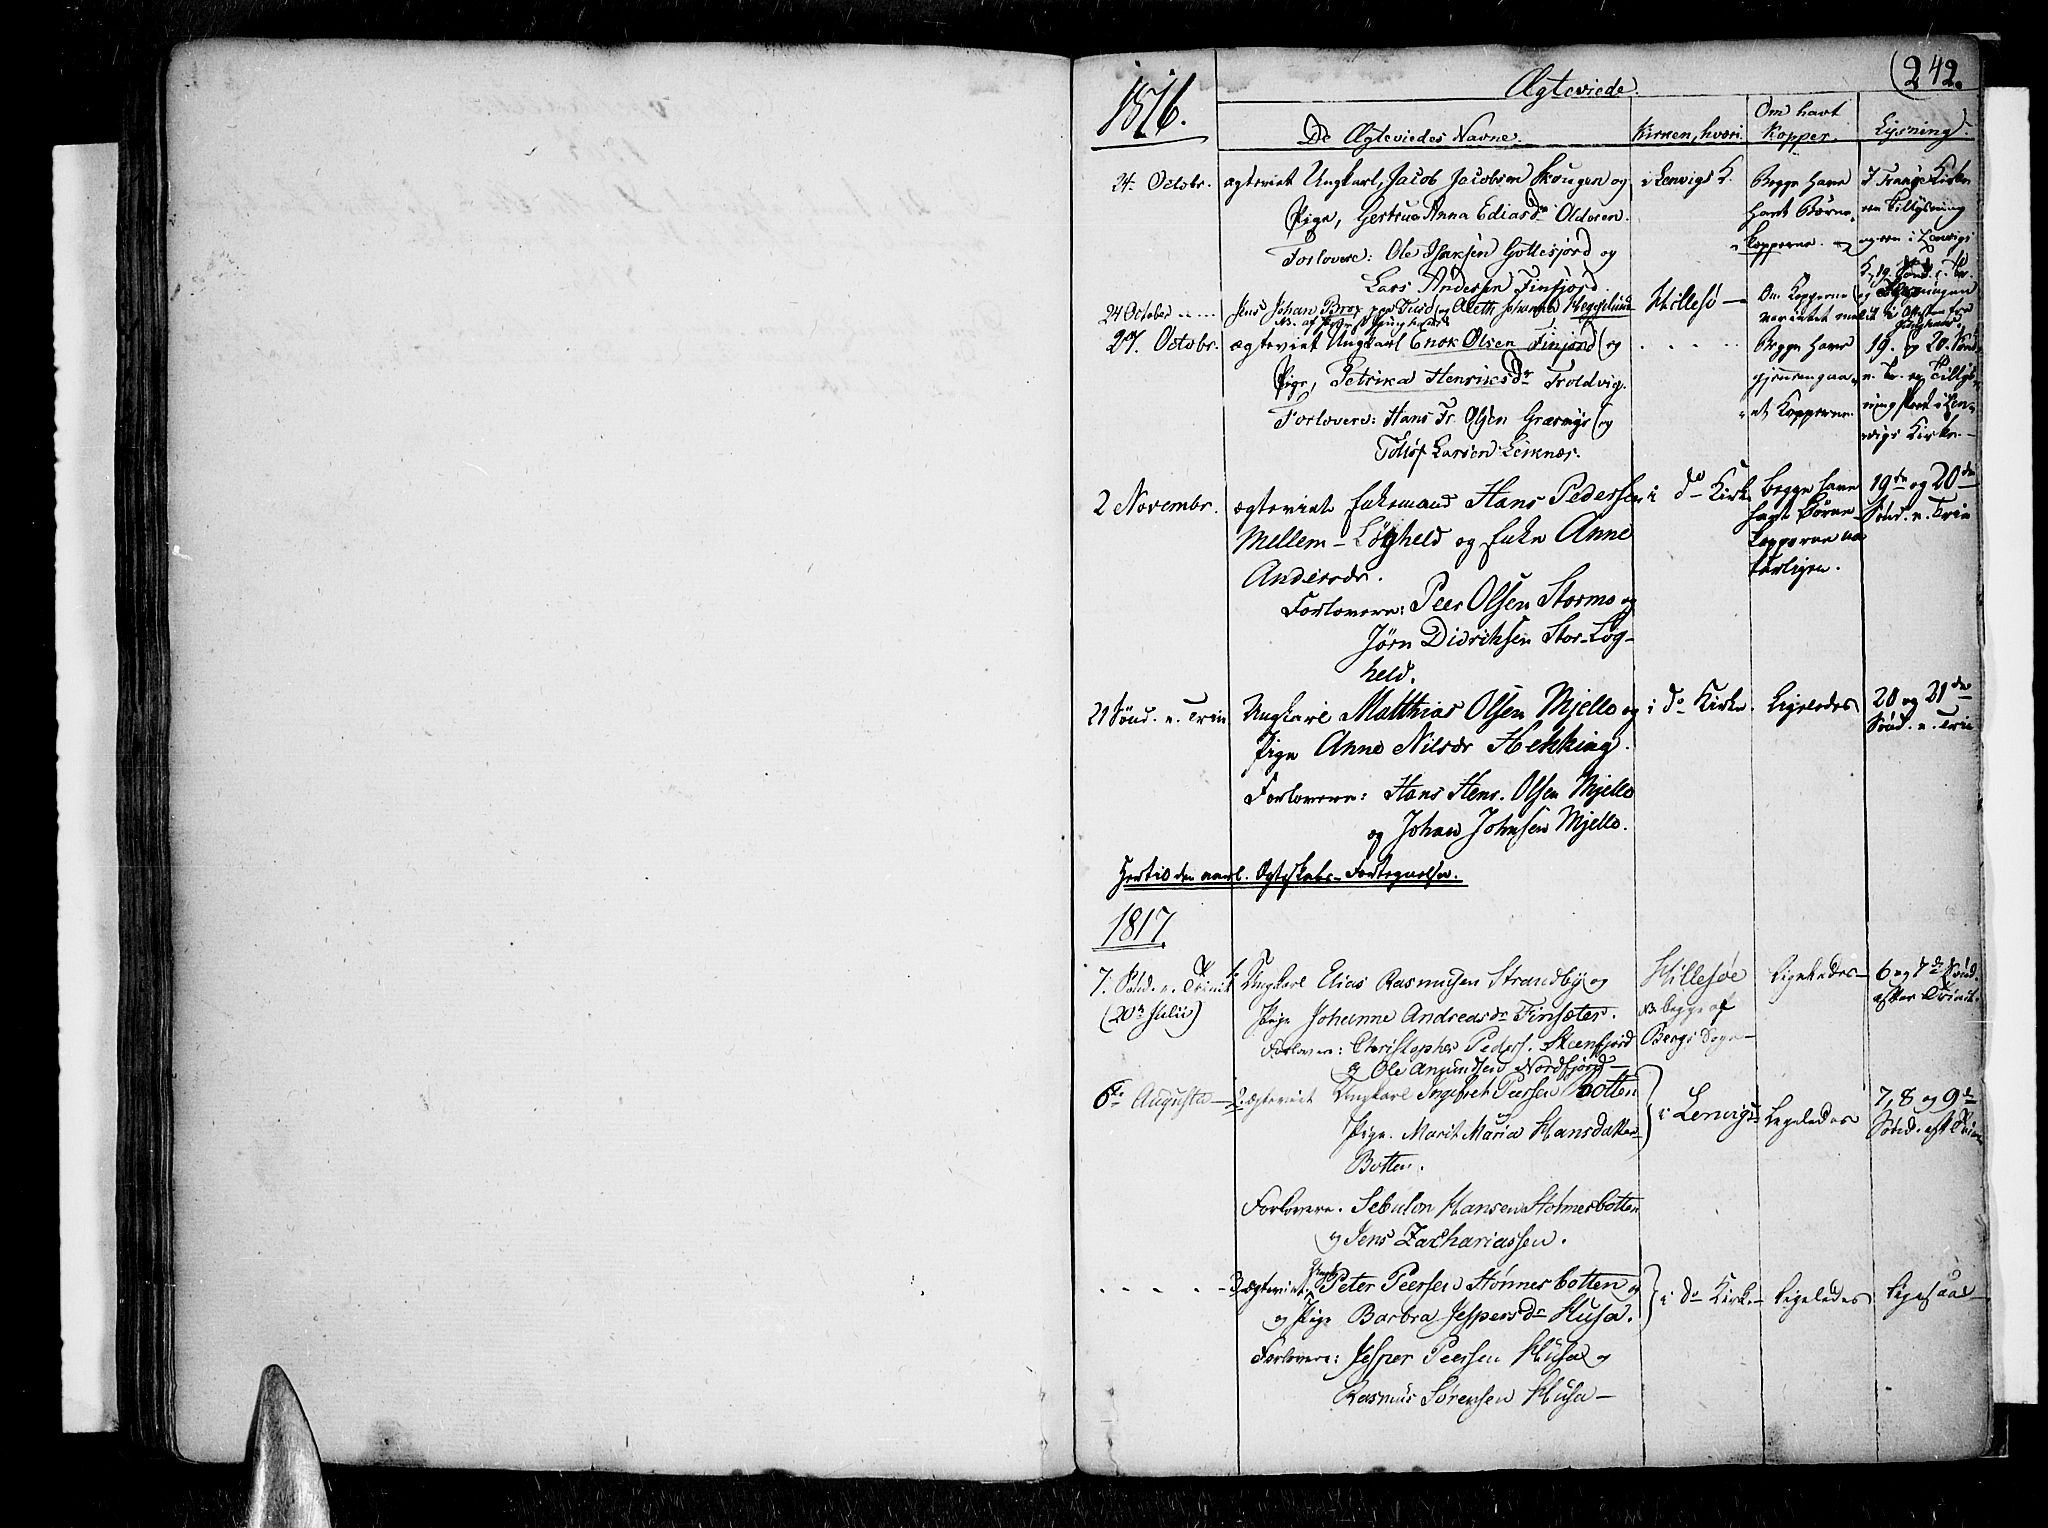 (242.
1816.
Ægteviede.
De Ægteviedes Navne.
Kirken, hvori.
Om havt
Kopper.
Lysning.
24. Octobr.
ægteviet Ungkarl, Jacob Jacobsen Skougen og
Pige, Gertrue Anna Ediasdr Oldvren.
Forlovere: Ole Isaksen Gottesjord og
Lars Andersen Finfjord.
i Lenvigs K.
Begge have
havt Børne-
kopperne.
I Tranøe Kirke
een Tillysning
og een i Lenvigs
24 October
Jens Johan og Aleth Johanna Heggelund
Hillesø —
Om Kopperne
27. Octobr.
ægteviet Ungkarl Enok Olsen Finjord og
Pige, Petrika Henriksdr Troldvig.
Forlovere: Hans Fr. Olsen Græsmyr og
Tolløf Larsen Leiknæs.
Begge have
gjennemgaa-
et Kopperne.
19. og 20. Sønd.
e. Tr. og Tillys-
ning skeet i Len-
vigs Kirke.
2 Novembr.
ægteviet Enkemand Hans Pedersen
Mellem-Løgheld og Enke Anne
Andersdr.
Forlovere: Peer Olsen Stormo og
Jørn Didriksen Stor-Løg-
held.
i do Kirke
begge have
havt Børne-
kopperne na-
turligen.
19de og 20de
Sønd. e. Trin
21 Sønd. e. Trin
Ungkarl Matthias Olsen Mjelle og
Pige Anne Nilsdr Hekking.
Forlovere: Hans Hens. Olsen Mjelle
og Johan Johnsen Mjelle.
i do Kirke.
Ligeledes
20 og 21de
Sønd. e. Trin
Hertil den aarl. Ægteskabs-Fortegnelse.
1817.
7. Sønd. e. Trinit.
(20de Julii)
1. Ungkarl Elias Rasmusen Strandby og
Pige Johanne Andreasdr Finsæter.
Forlovere: Christopher Peders. Steenfjord
og Ole Amundsen Nordfjord —
Hillesøe
NB. begge af
Bergs Sogn —
Ligeledes —
6 og 7de Sønd.
efter Trinit.
6te Augusti —
2. ægteviet Ungkarl Ingebret Peersen Botten
Pige. Marit Maria Hansdatter
Botten.
Forlovere. Sebulon Hansen Holmesbotten
og Jens Zachariassen.
i Lenvigs —
Ligeledes
7, 8 og 9de
Sønd. eft. Trin
3 ægteviet Ungk. Peter Peersen Hønnesbotten
og Pige Barbra Jespersdr Husa.
Forlovere: Jesper Peersen Husa og
Rasmus Sørensen Husa —
i do Kirke —
Ligeledes
Ligesaae —